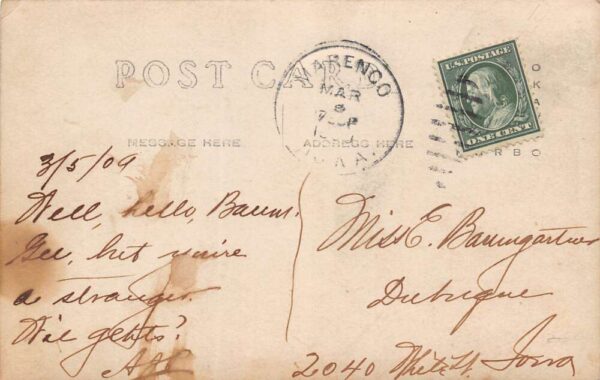 POST CARD
MARENGO
MAR
IOWA
U.S. POSTAGE
ONE CENT
MESSAGE HERE
ADDRESS HERE
3/5/09
Well, hello, Baum.
Gee, but you're
a stranger.
Wie gehts?
Miss E. Baumgartner
Dubuque
2040 White St. Iowa